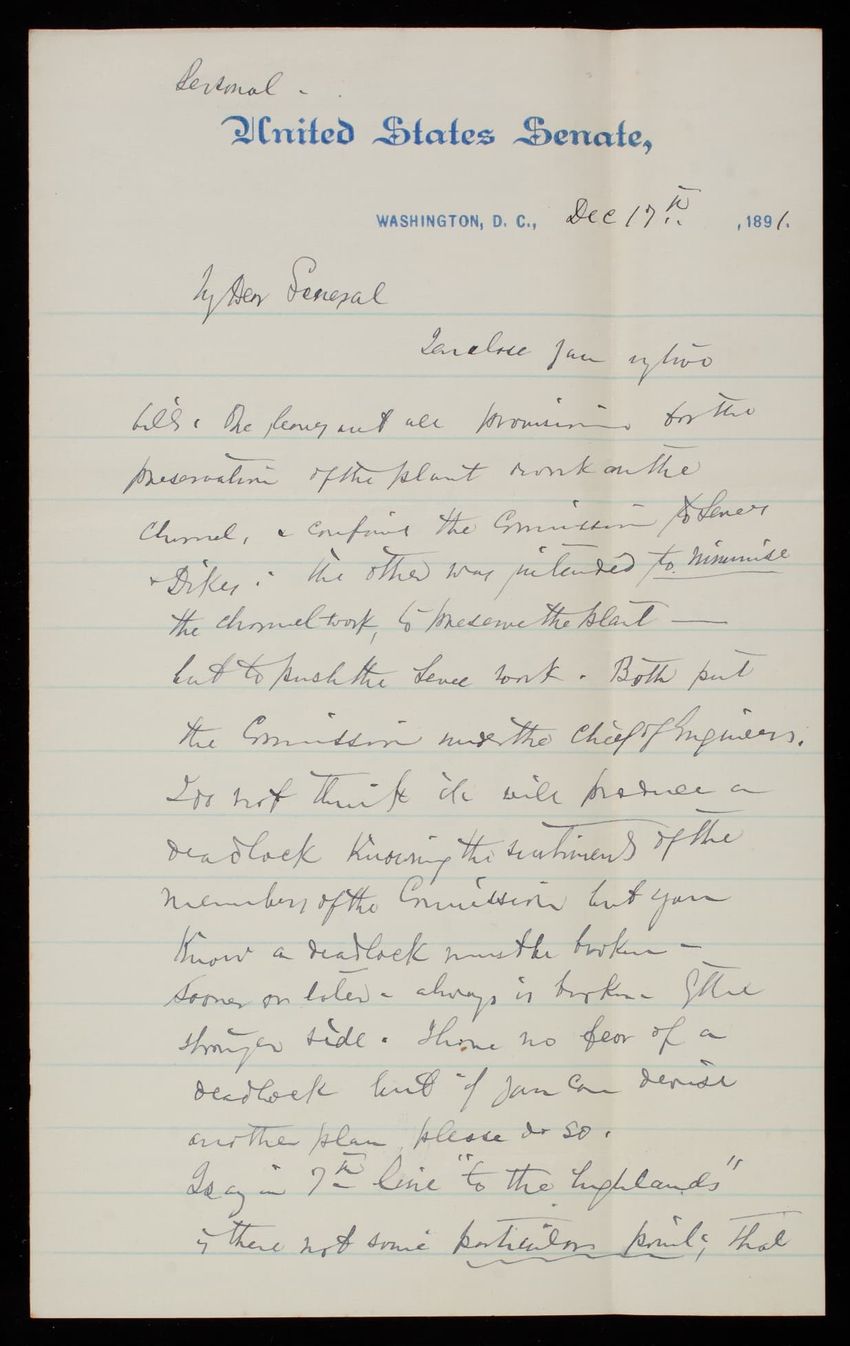 Personal -
United States Senate,
WASHINGTON, D. C., Dec 17th, 1891.
My Dear General
I enclose you my two
bills. One leaves out all provision for the
preservation of the plant work on the
channel, & confines the Commission to Levees
& Dikes. The other was intended to minimise
the channel work, to preserve the plant —
but to push the Levee work. Both put
the Commission under the Chief of Engineers.
I do not think it will produce a
deadlock Knowing the sentiments of the
members of the Commission but you
Know a deadlock must be broken -
sooner or later - always is broken - by the
stronger side. I have no fear of a
deadlock but if you can devise
another plan, please do so.
I say in 7th line "to the highlands"
is there not some particular point, that